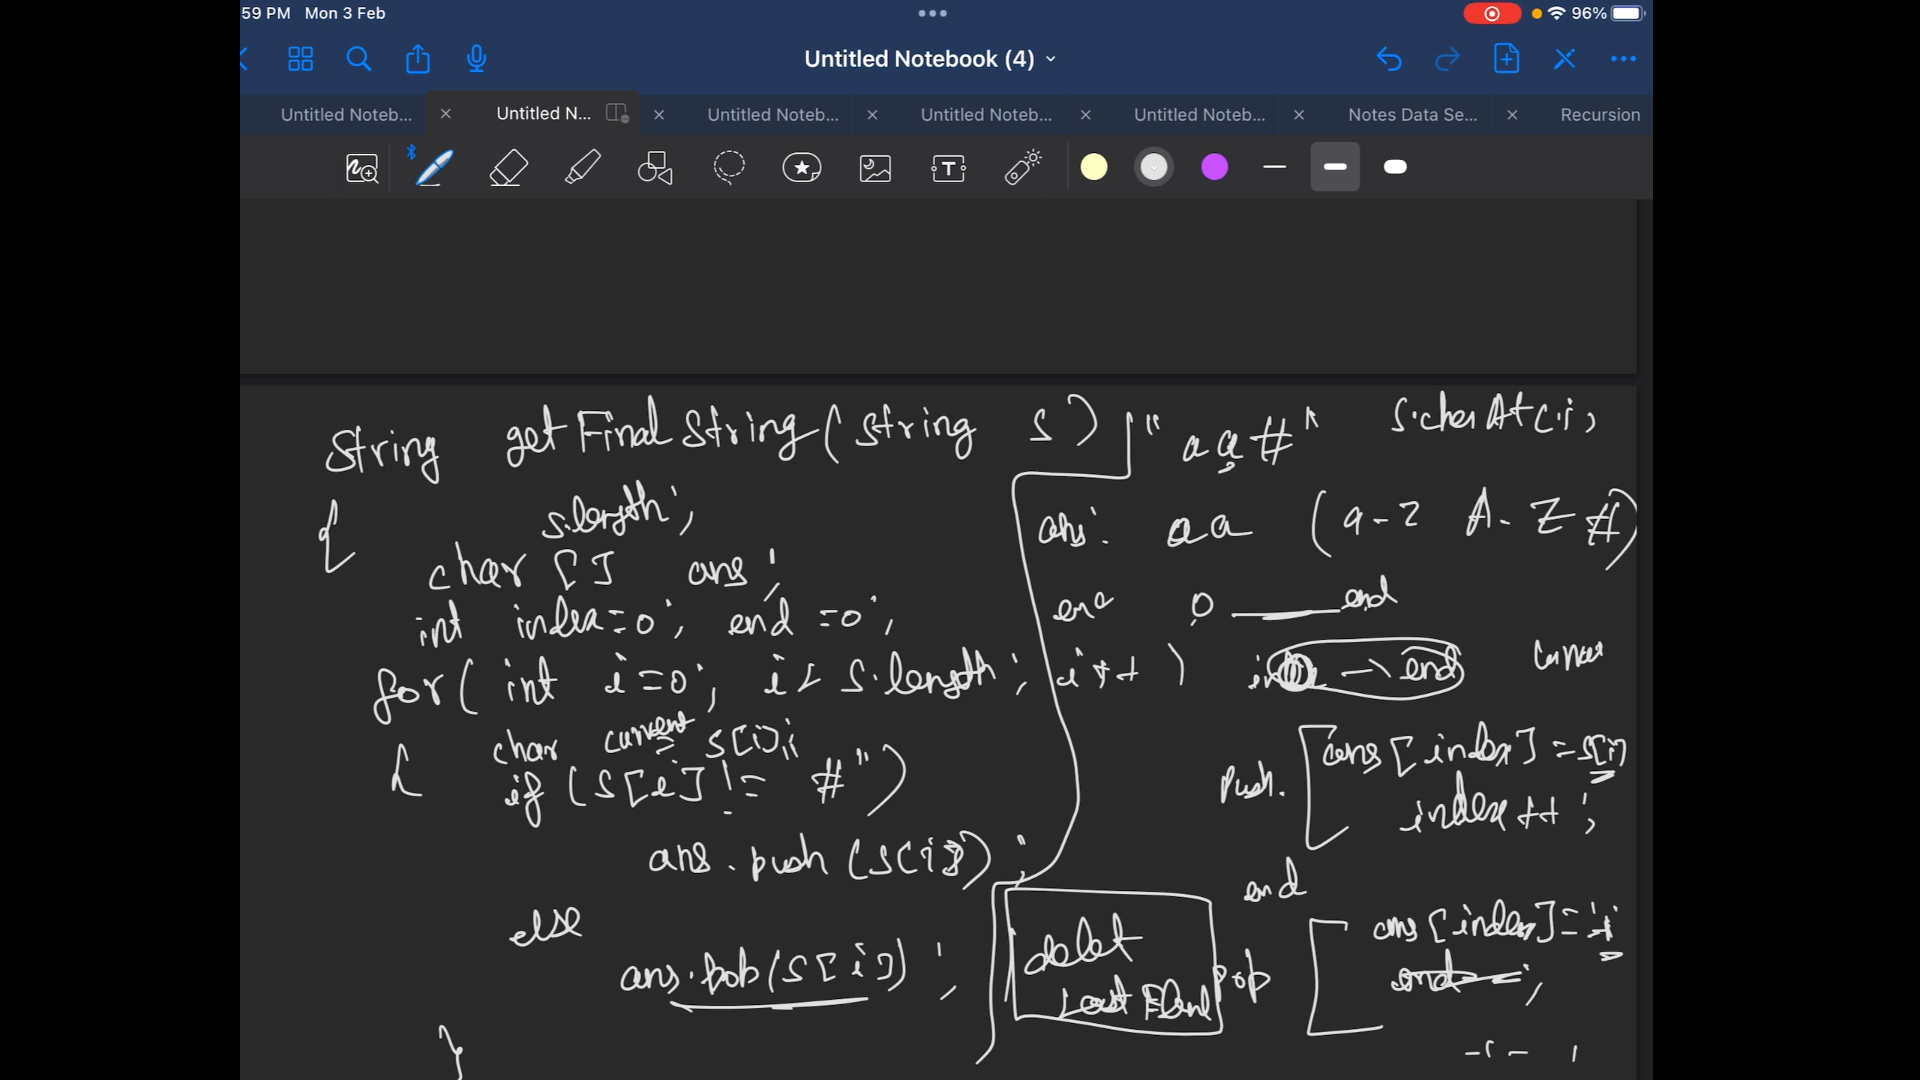 59 PM Mon 3 Feb
96%
Untitled Notebook (4)
Untitled Noteb...
Untitled N...
Untitled Noteb...
Untitled Noteb...
Untitled Noteb...
Notes Data Se...
Recursion
String getFinalString(String s)
{
s.length;
char [] ans;
int index=0; end =0;
for( int i=0; i< s.length; i++ )
{ char current = s[i];
if (s[i] != #")
ans.push (s[i]);
else
ans.pop(s[i]);
}
"aa#" s.charAt(i);
ans: aa (a-z A-Z #)
0 end
→ end
push. ans[index] = s[i]
index++;
end
delet
Last
pop ans[index]=
end